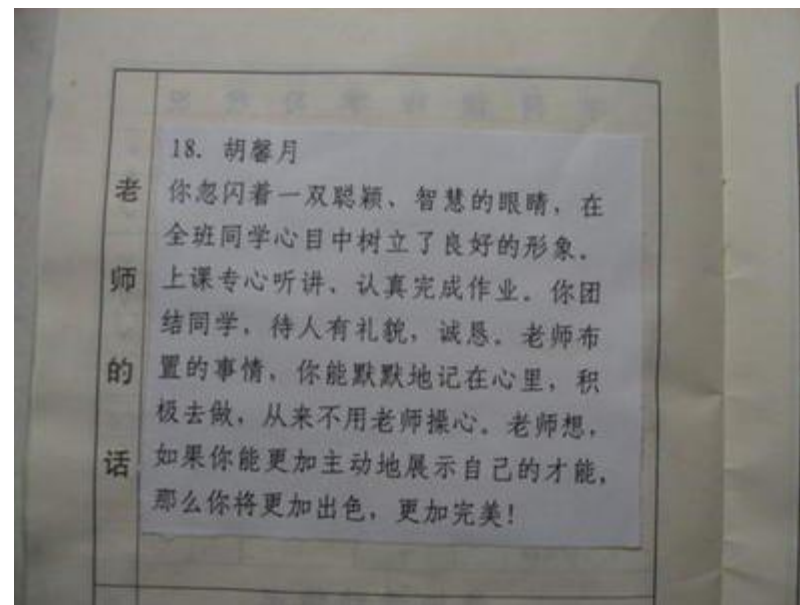 老师的话
18. 胡馨月
你忽闪着一双聪颖、智慧的眼睛，在
全班同学心目中树立了良好的形象。
上课专心听讲、认真完成作业。你团
结同学，待人有礼貌，诚恳。老师布
置的事情，你能默默地记在心里，积
极去做，从来不用老师操心。老师想，
如果你能更加主动地展示自己的才能，
那么你将更加出色，更加完美！